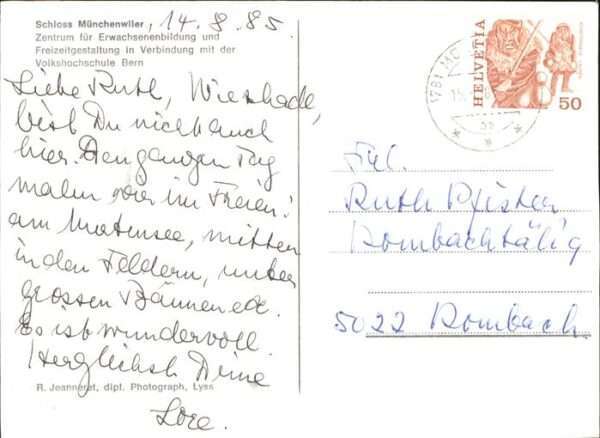 Schloss Münchenwiler, 14.8.85.
Zentrum für Erwachsenenbildung und
Freizeitgestaltung in Verbindung mit der
Volkshochschule Bern
Liebe Ruth, Wie schade,
bist Du nicht auch
hier. Den ganzen Tag
malen wir im Freien!
am Murtensee, mitten
in den Feldern, unter
grossen Bäumen etc.
Es ist wundervoll.
Herzlichst Deine
Lore.
R. Jeanneret, dipl. Photograph, Lyss
HELVETIA
50
1781
Frl.
Ruth Pfister
Rombachtälig
5022 Rombach.